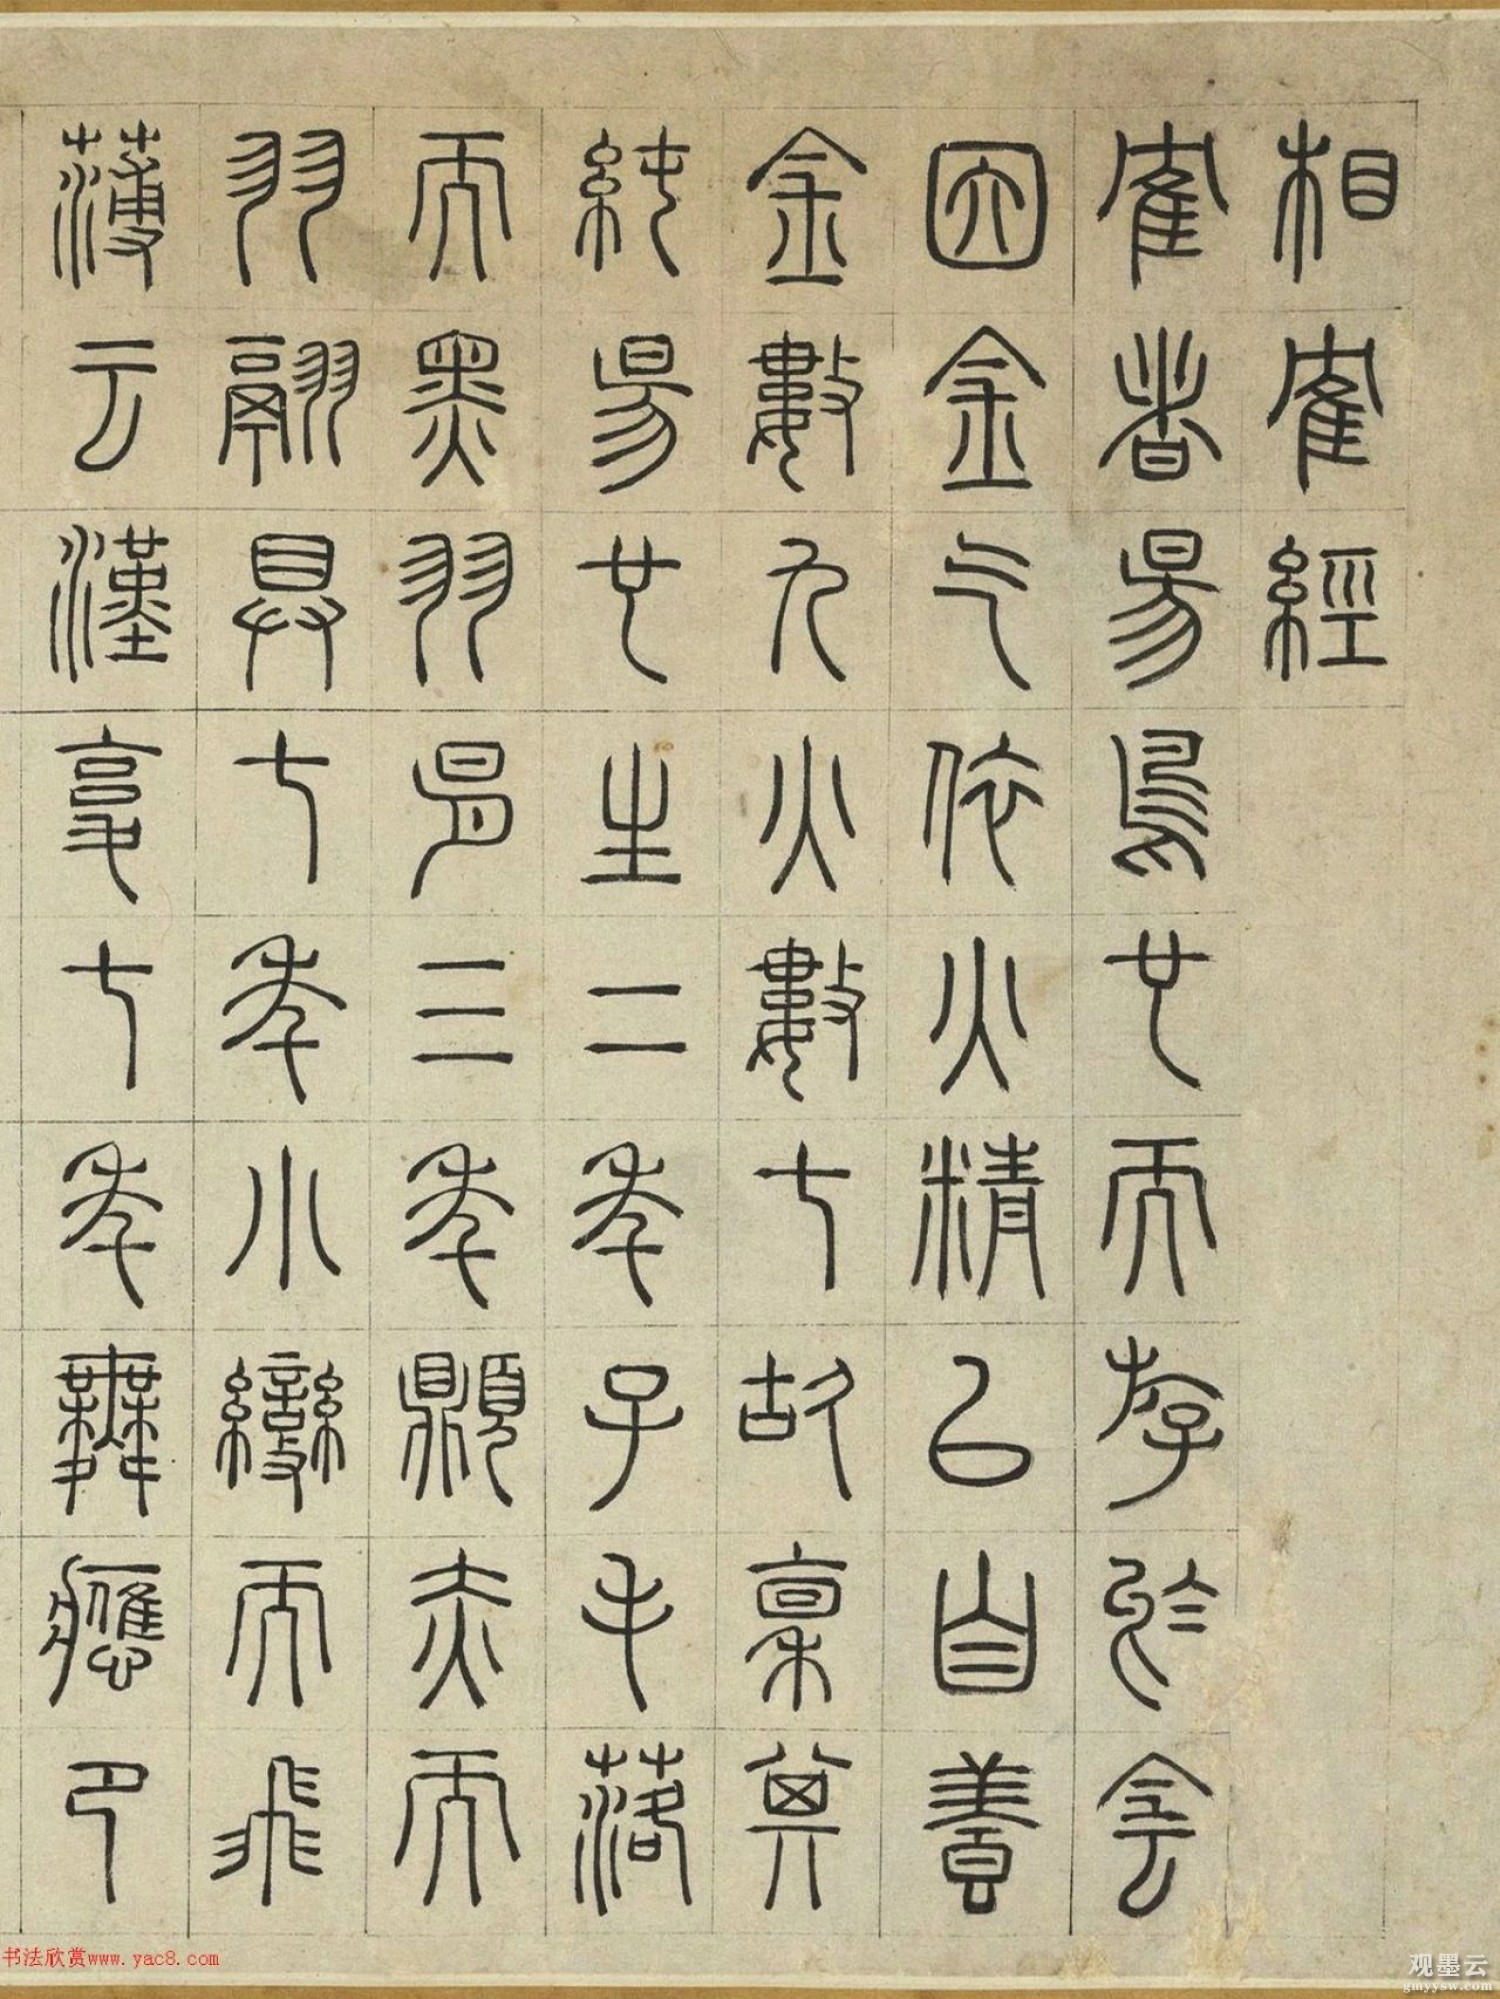 相隺經
隺者昜鳥也而斿於侌
因金气依火精㠯自養
金數九火數七故稟其
純昜也生二年子毛落
而黑羽易三年顁赤而
羽翮具七年小變而飛
薄云漢复七年舞應卪
书法欣赏www.yac8.com
观墨云
gmyysw.com